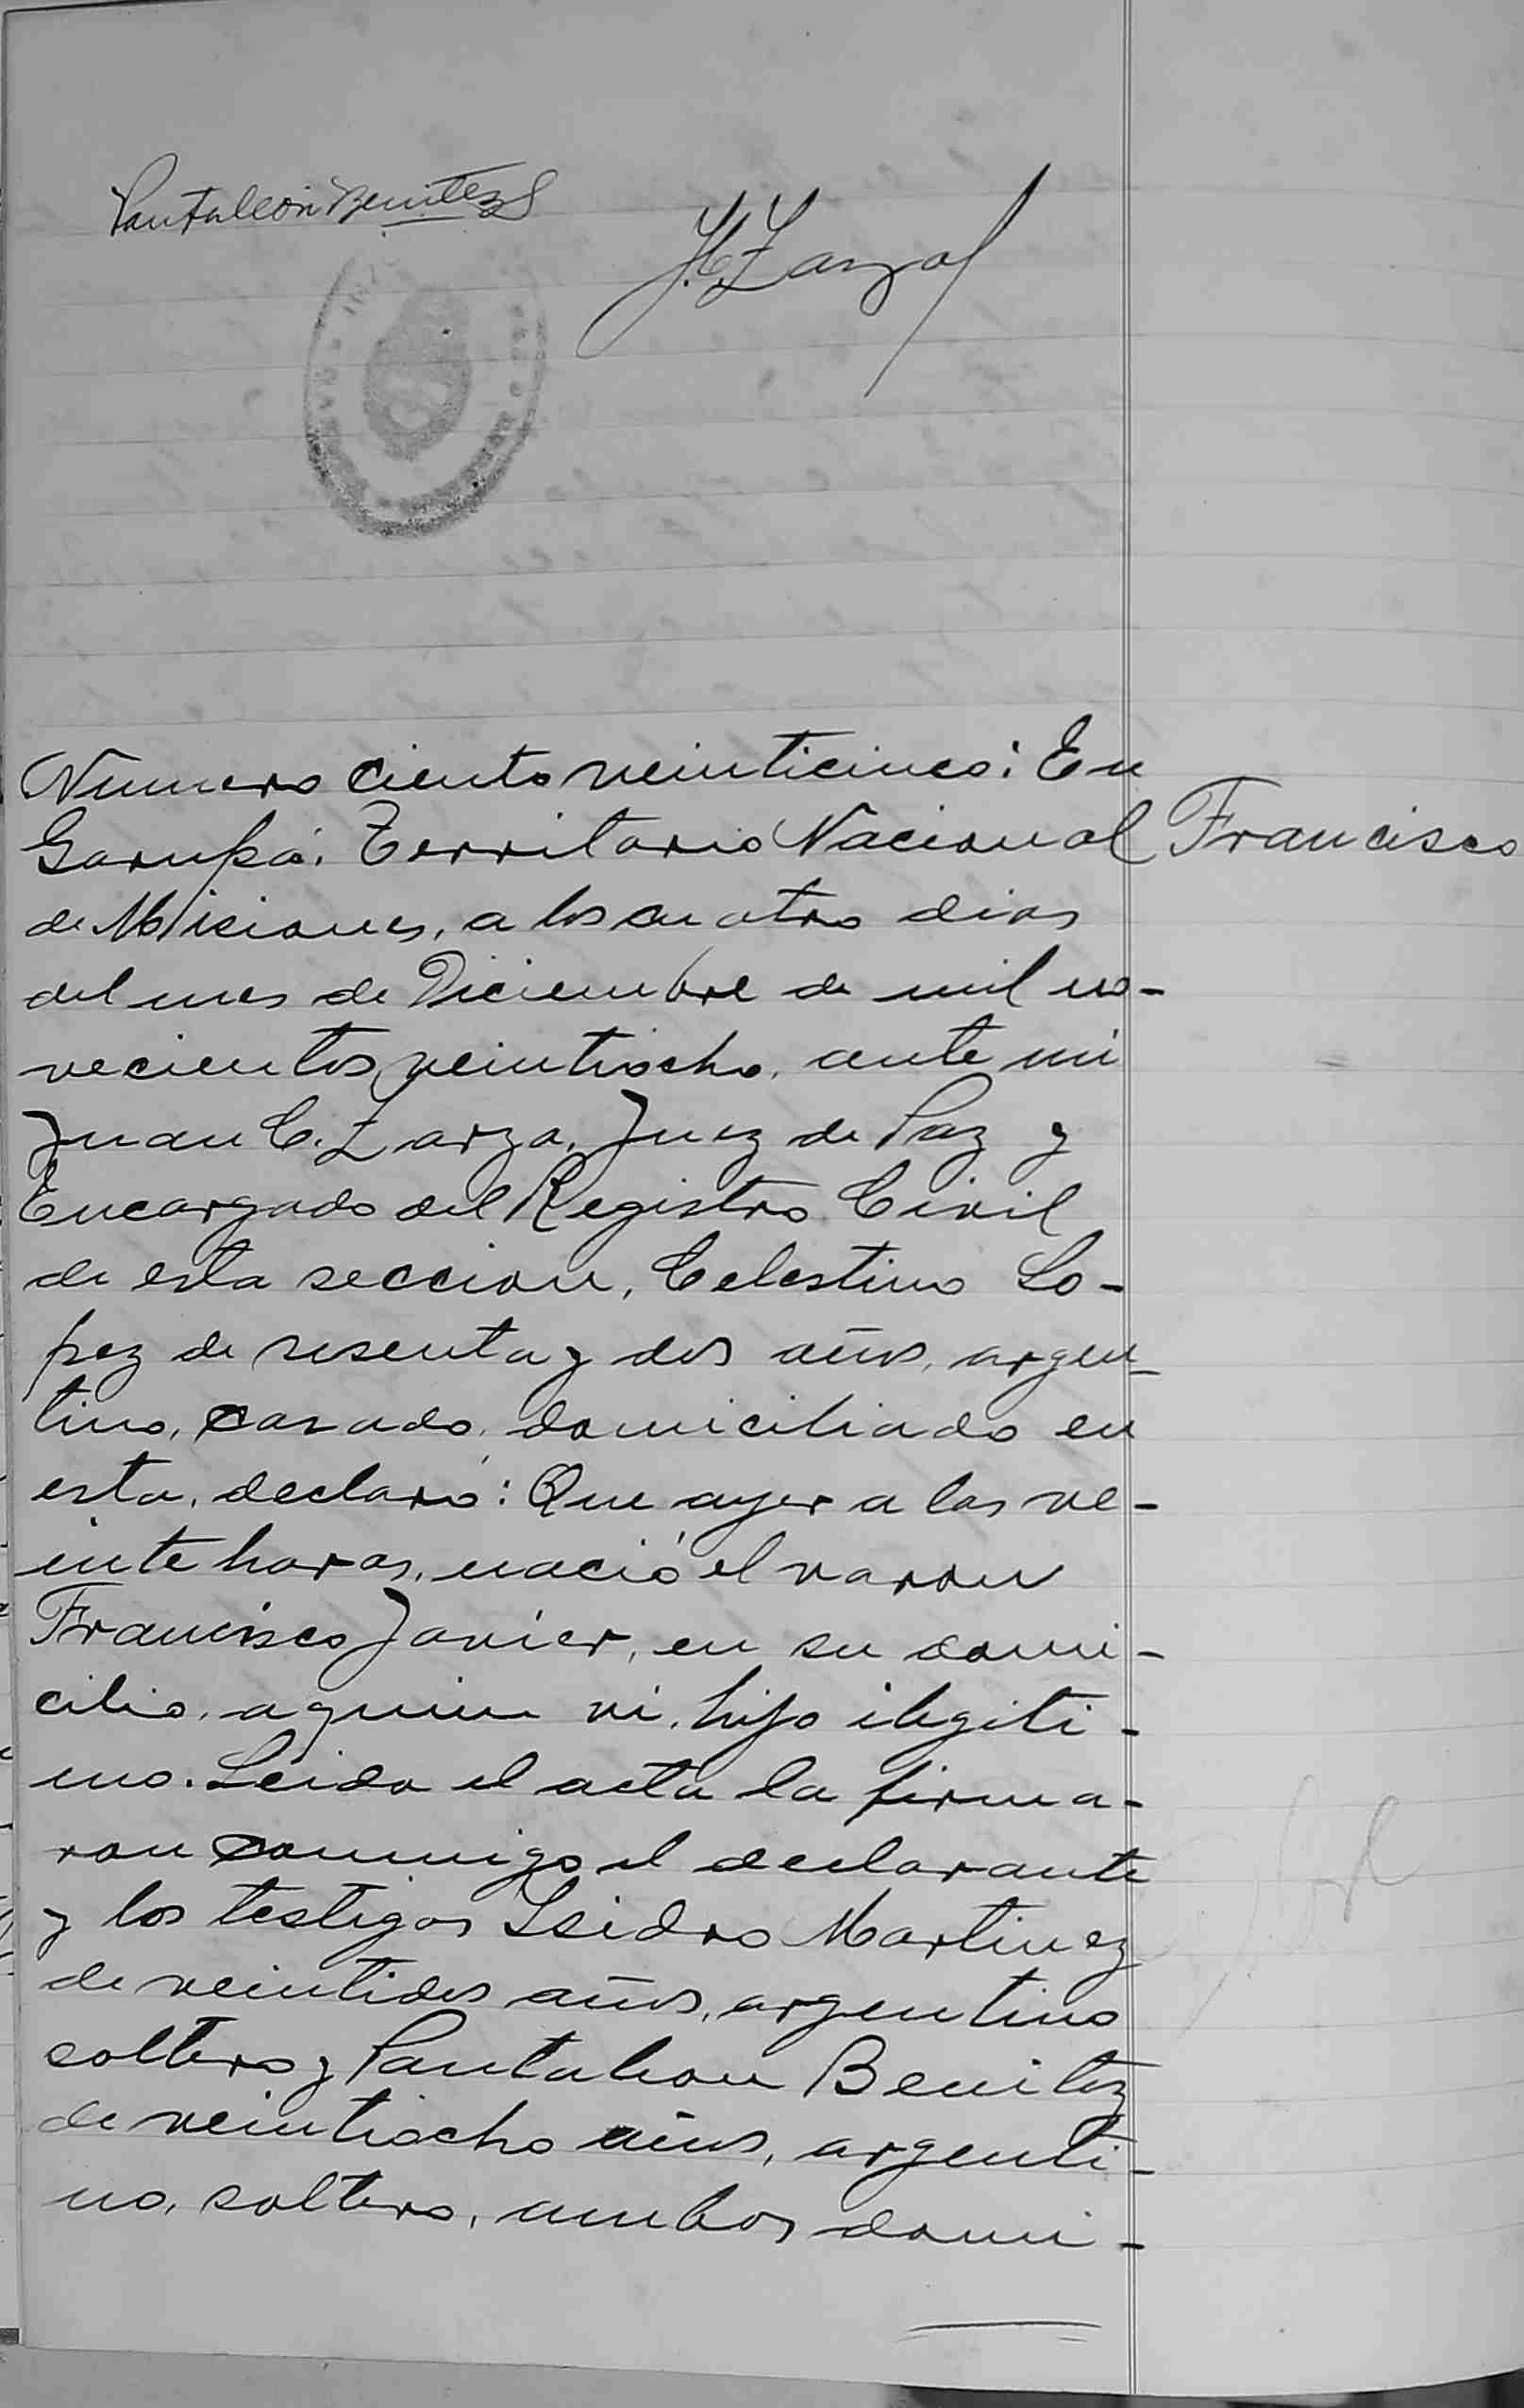 Pantaleón Benitez
J. C. Zarza
Número ciento veinticinco: En
Garupá. Territorio Nacional
Francisco
de Misiones, a los cuatro dias
del mes de Diciembre de mil no-
vecientos veintiocho, ante mi
Juan C. Zarza, Juez de Paz y
Encargado del Registro Civil
de esta seccion, Celestino Lo-
pez de sesenta y dos años, argen-
tino, casado, domiciliado en
esta, declaró: Que ayer a las ve-
inte horas, nació el varon
Francisco Javier, en su domi-
cilio, a quien vi, hijo ilegiti-
mo. Leida el acta la firma-
ron conmigo el declarante
y los testigos Isidro Martinez
de veintidos años, argentino
soltero y Pantaleon Benitez
de veintiocho años, argenti-
no, soltero, ambos domi-